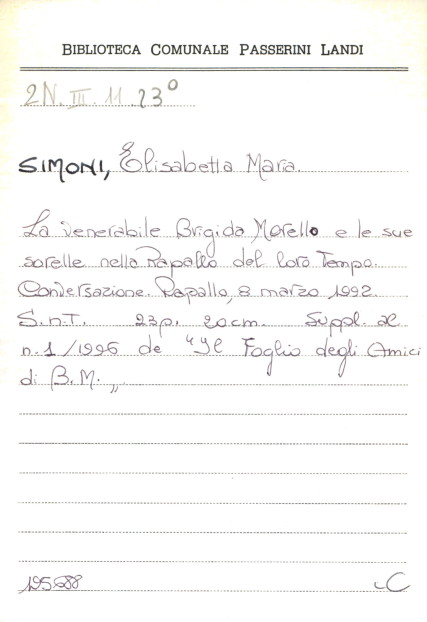 BIBLIOTECA COMUNALE PASSERINI LANDI
2N. III. 11 23°
SIMONI, Elisabetta Maria.
La venerabile Brigida Morello e le sue
sorelle nella Rapallo del loro Tempo.
Conversazione. Rapallo, 8 marzo 1992.
S.n.T. 23p. 20cm. Suppl. al
n.1/1996 de "Il Foglio degli Amici
di B.M.„
195688 C